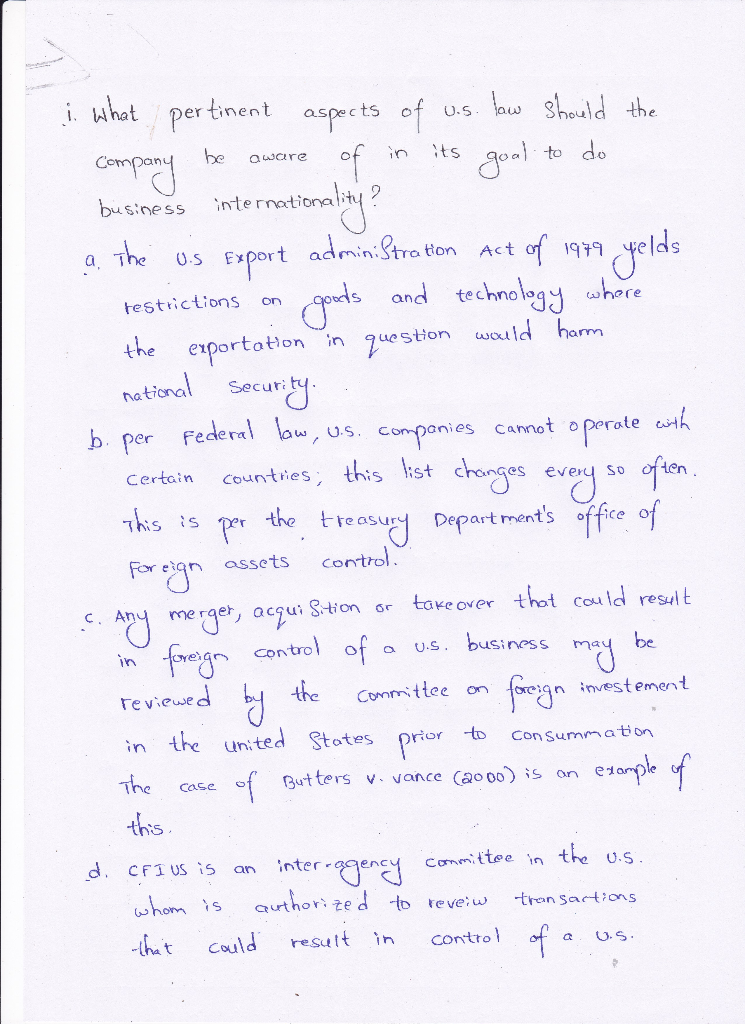 i. What pertinent aspects of U.S. law Should the
Company be aware of in its goal to do
business internationality?
a. The U.S Export adminiStration Act of 1979 yelds
restrictions on goods and technology where
the exportation in question would harm
national Security.
b. per Federal law, U.S. companies cannot operate with
certain countries; this list changes every so often.
This is per the treasury Department's office of
Foreign assets control.
c. Any merger, acquiSition or takeover that could result
in foreign control of a U.S. business may be
reviewed by the committee on foreign investement
in the united States prior to consummation
The case of Butters v. vance (2000) is an example of
this.
d. CFIUS is an inter-agency committee in the U.S.
whom is authorized to reveiw transactions
that could result in control of a U.S.